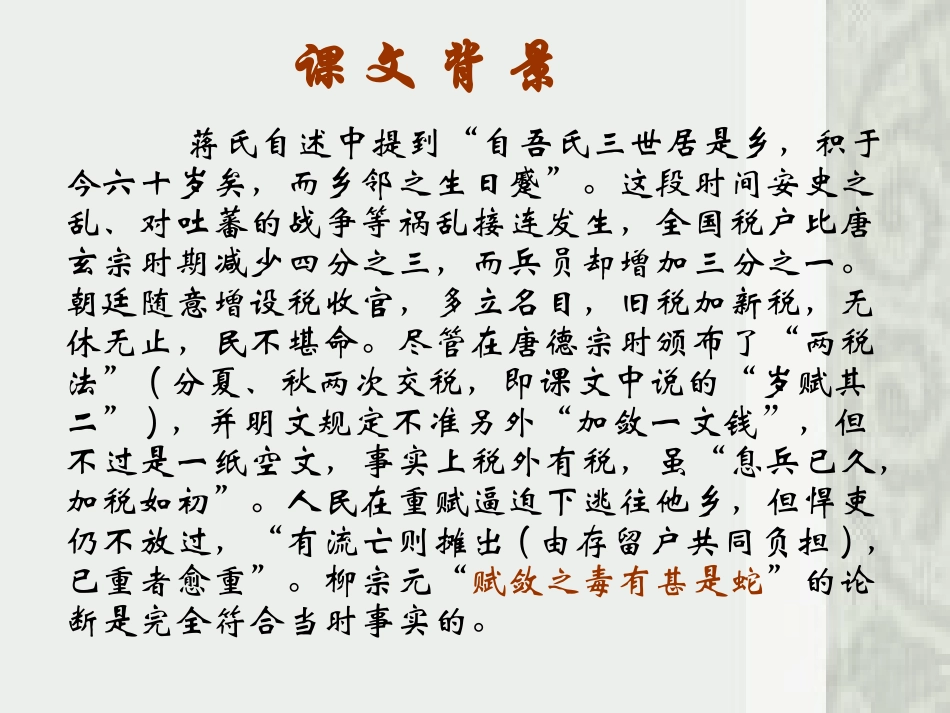 课文背景
蒋氏自述中提到“自吾氏三世居是乡，积于
今六十岁矣，而乡邻之生日蹙”。这段时间安史之
乱、对吐蕃的战争等祸乱接连发生，全国税户比唐
玄宗时期减少四分之三，而兵员却增加三分之一。
朝廷随意增设税收官，多立名目，旧税加新税，无
休无止，民不堪命。尽管在唐德宗时颁布了“两税
法”（分夏、秋两次交税，即课文中说的“岁赋其
二”），并明文规定不准另外“加敛一文钱”，但
不过是一纸空文，事实上税外有税，虽“息兵已久，
加税如初”。人民在重赋逼迫下逃往他乡，但悍吏
仍不放过，“有流亡则摊出（由存留户共同负担），
已重者愈重”。柳宗元“赋敛之毒有甚是蛇”的论
断是完全符合当时事实的。